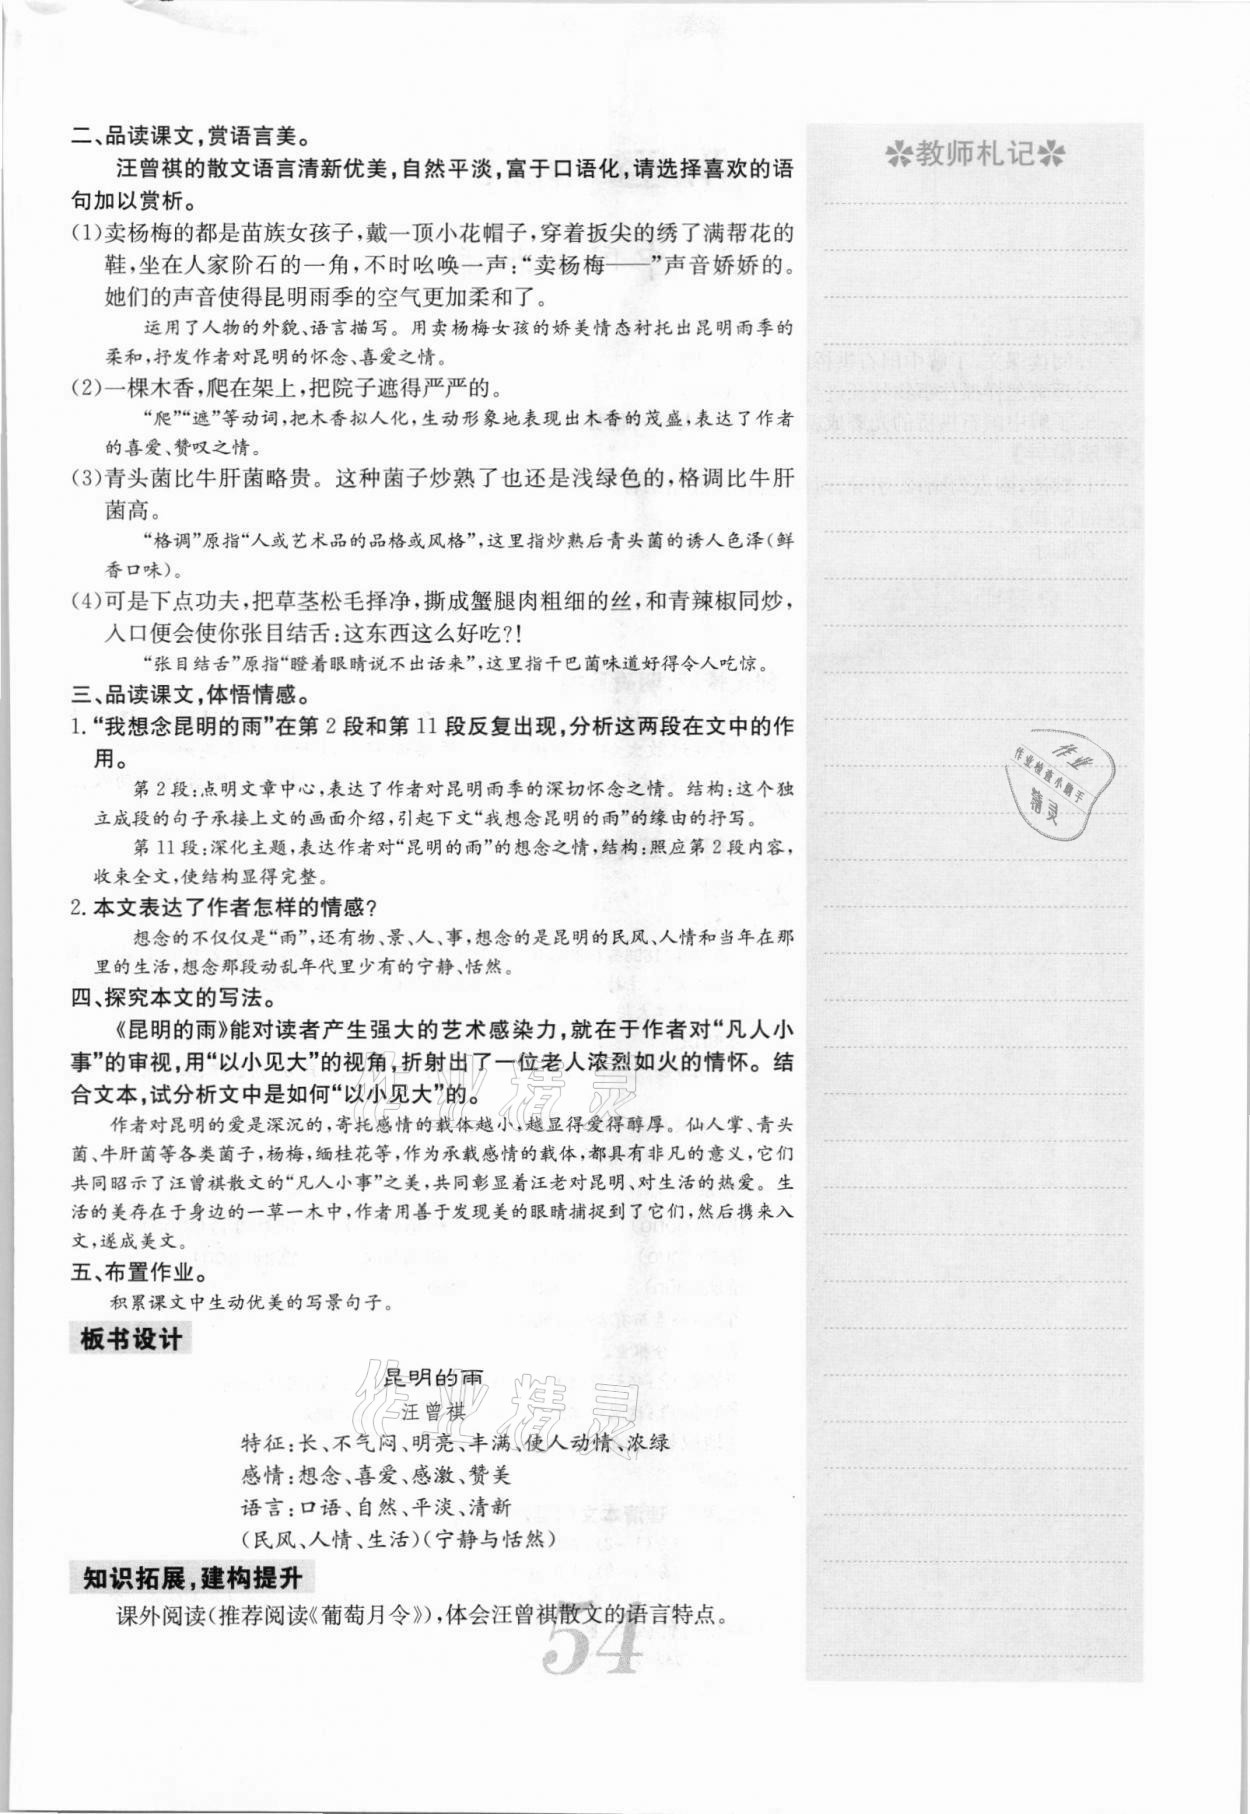 二、品读课文,赏语言美。
汪曾祺的散文语言清新优美,自然平淡,富于口语化,请选择喜欢的语
句加以赏析。
(1)卖杨梅的都是苗族女孩子,戴一顶小花帽子,穿着扳尖的绣了满帮花的
鞋,坐在人家阶石的一角,不时吆唤一声:“卖杨梅——”声音娇娇的。
她们的声音使得昆明雨季的空气更加柔和了。
运用了人物的外貌、语言描写。用卖杨梅女孩的娇美情态衬托出昆明雨季的
柔和,抒发作者对昆明的怀念、喜爱之情。
(2)一棵木香,爬在架上,把院子遮得严严的。
“爬”“遮”等动词,把木香拟人化,生动形象地表现出木香的茂盛,表达了作者
的喜爱、赞叹之情。
(3)青头菌比牛肝菌略贵。这种菌子炒熟了也还是浅绿色的,格调比牛肝
菌高。
“格调”原指“人或艺术品的品格或风格”,这里指炒熟后青头菌的诱人色泽(鲜
香口味)。
(4)可是下点功夫,把草茎松毛择净,撕成蟹腿肉粗细的丝,和青辣椒同炒,
入口便会使你张目结舌:这东西这么好吃?!
“张目结舌”原指“瞪着眼睛说不出话来”,这里指干巴菌味道好得令人吃惊。
三、品读课文,体悟情感。
1.“我想念昆明的雨”在第2段和第11段反复出现,分析这两段在文中的作
用。
第2段:点明文章中心,表达了作者对昆明雨季的深切怀念之情。结构:这个独
立成段的句子承接上文的画面介绍,引起下文“我想念昆明的雨”的缘由的抒写。
第11段:深化主题,表达作者对“昆明的雨”的想念之情,结构:照应第2段内容,
收束全文,使结构显得完整。
2.本文表达了作者怎样的情感?
想念的不仅仅是“雨”,还有物、景、人、事,想念的是昆明的民风、人情和当年在那
里的生活,想念那段动乱年代里少有的宁静、恬然。
四、探究本文的写法。
《昆明的雨》能对读者产生强大的艺术感染力,就在于作者对“凡人小
事”的审视,用“以小见大”的视角,折射出了一位老人浓烈如火的情怀。结
合文本,试分析文中是如何“以小见大”的。
作者对昆明的爱是深沉的,寄托感情的载体越小,越显得爱得醇厚。仙人掌、青头
菌、牛肝菌等各类菌子,杨梅,缅桂花等,作为承载感情的载体,都具有非凡的意义,它们
共同昭示了汪曾祺散文的“凡人小事”之美,共同彰显着汪老对昆明、对生活的热爱。生
活的美存在于身边的一草一木中,作者用善于发现美的眼睛捕捉到了它们,然后携来入
文,遂成美文。
五、布置作业。
积累课文中生动优美的写景句子。
板书设计
昆明的雨
汪曾祺
特征:长、不气闷、明亮、丰满、使人动情、浓绿
感情:想念、喜爱、感激、赞美
语言:口语、自然、平淡、清新
(民风、人情、生活)(宁静与恬然)
知识拓展,建构提升
课外阅读(推荐阅读《葡萄月令》),体会汪曾祺散文的语言特点。
54
✽教师札记✽
作业
作业检查小助手
精灵
作业精灵
作业精灵